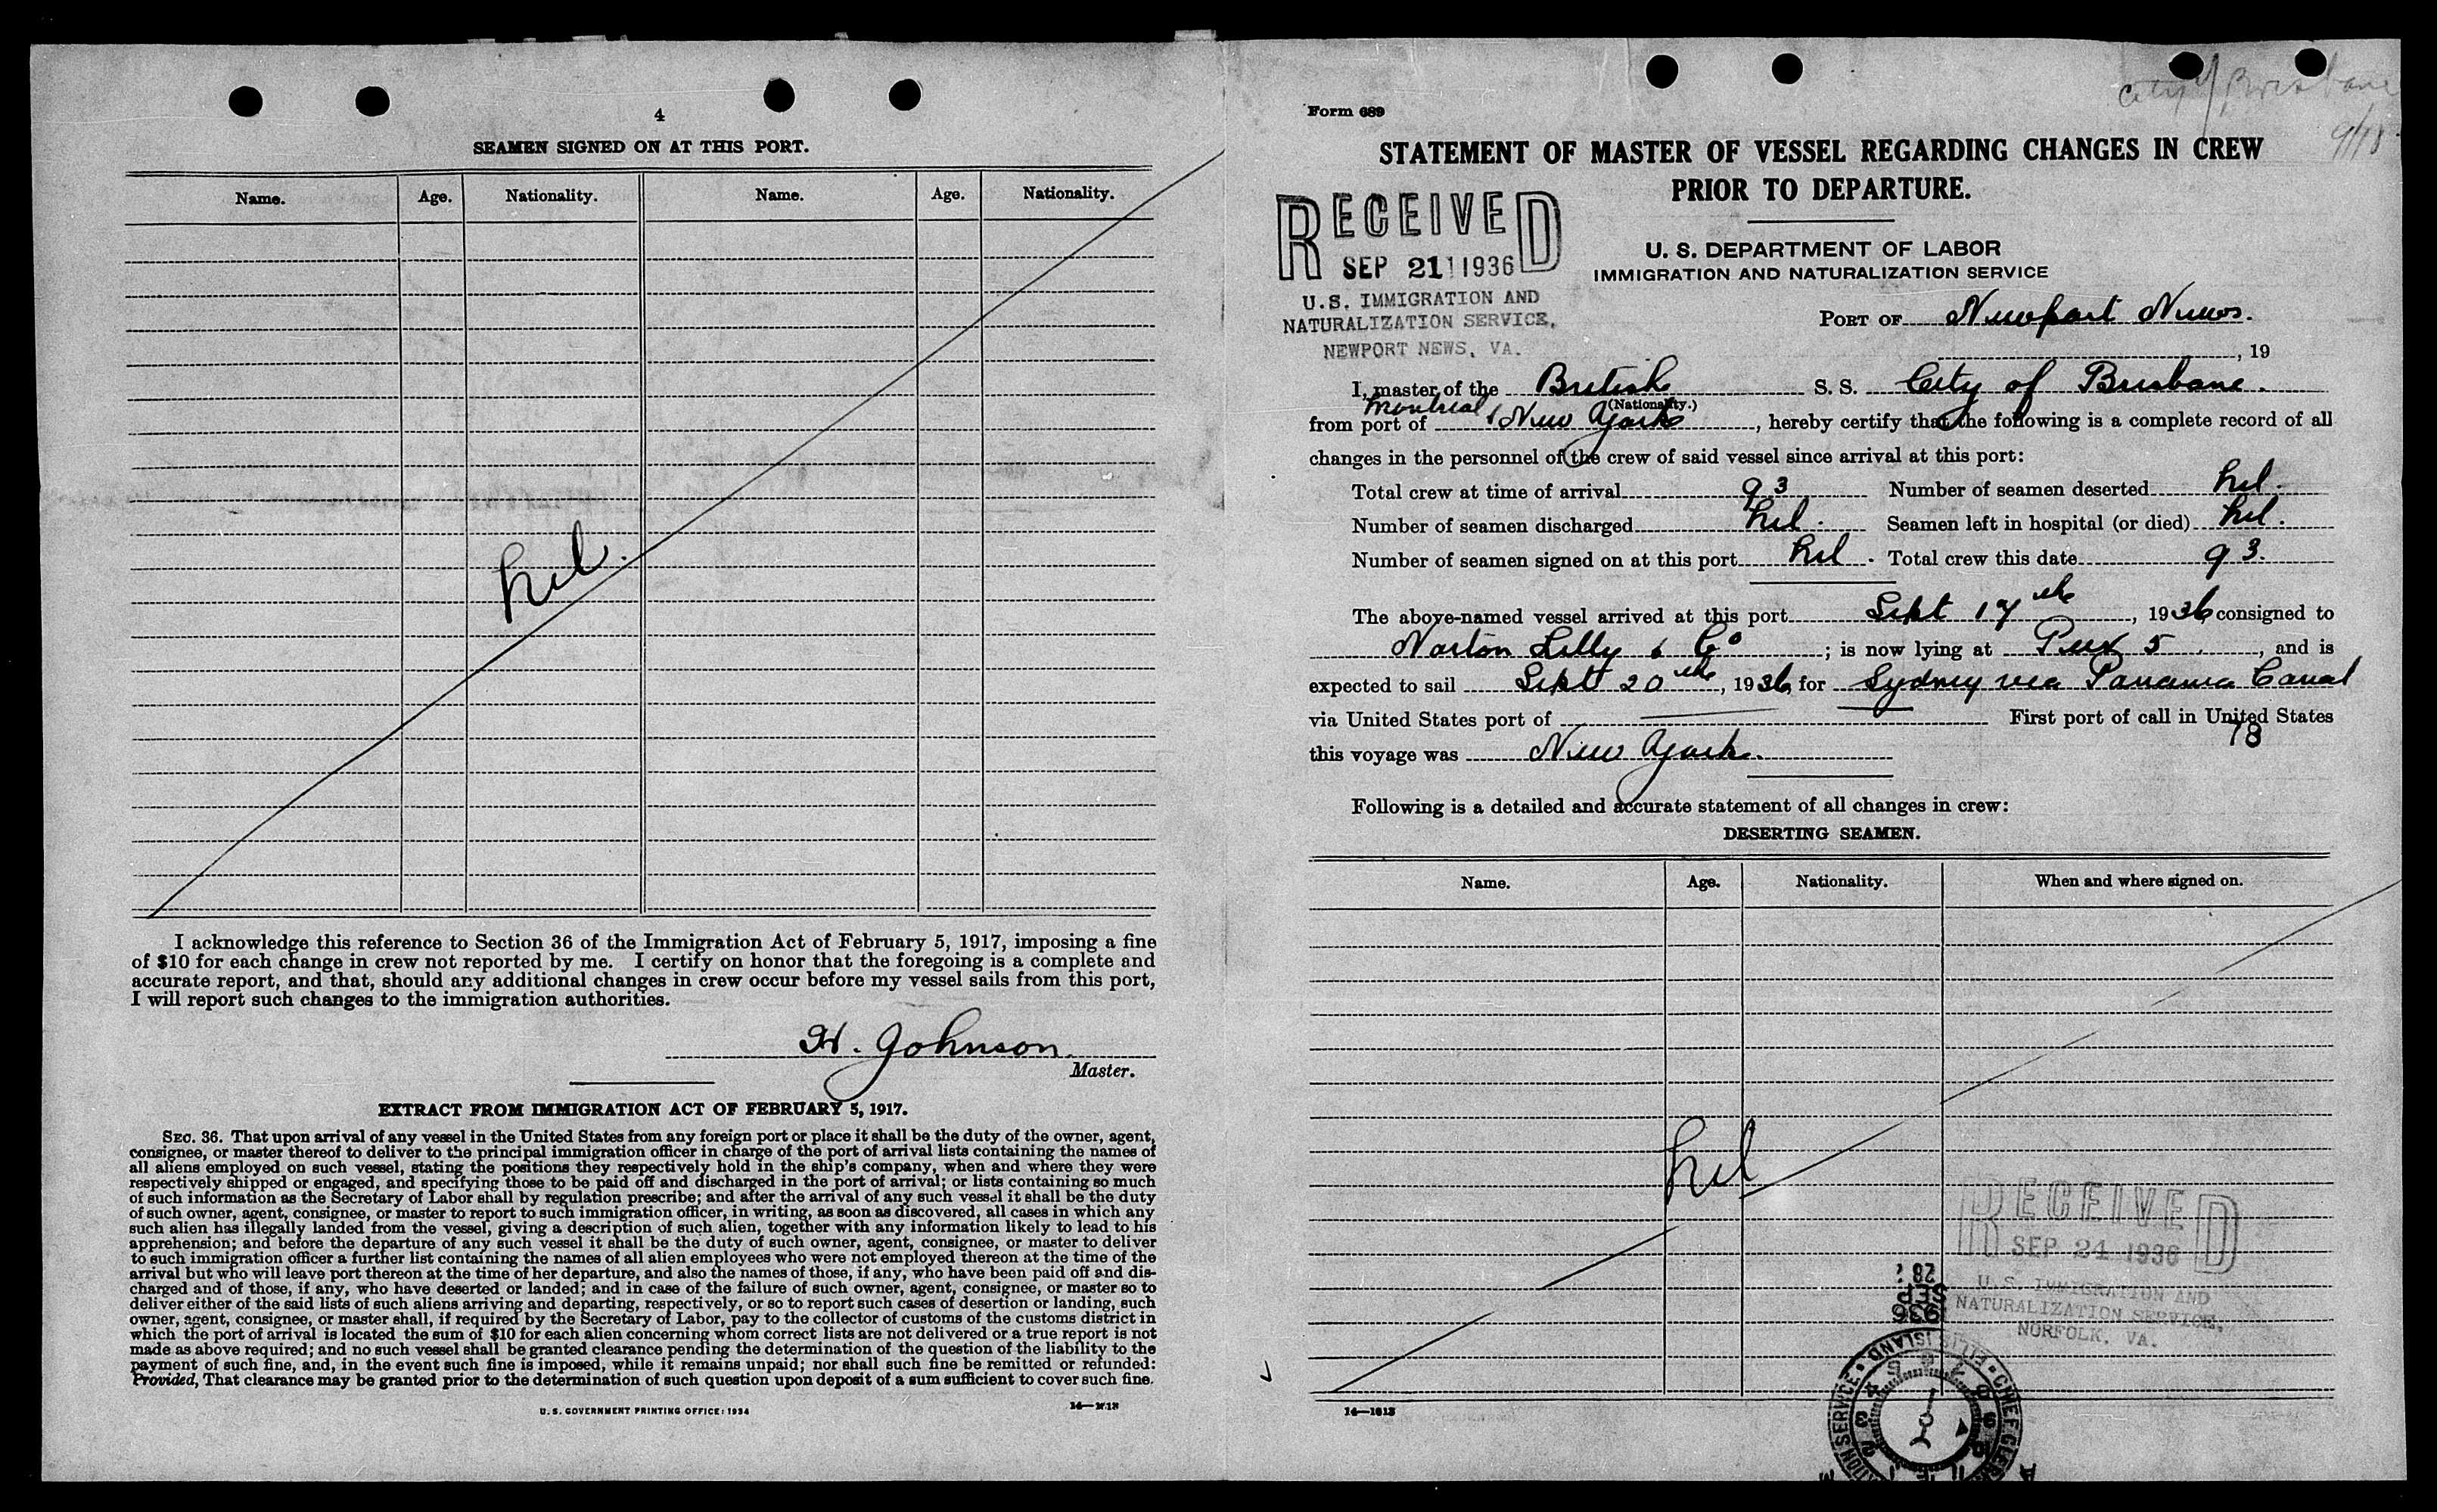 4
SEAMEN SIGNED ON AT THIS PORT.
Name. Age. Nationality. Name. Age. Nationality.
nil.
I acknowledge this reference to Section 36 of the Immigration Act of February 5, 1917, imposing a fine
of $10 for each change in crew not reported by me. I certify on honor that the foregoing is a complete and
accurate report, and that, should any additional changes in crew occur before my vessel sails from this port,
I will report such changes to the immigration authorities.
H. Johnson
Master.
EXTRACT FROM IMMIGRATION ACT OF FEBRUARY 5, 1917.
SEC. 36. That upon arrival of any vessel in the United States from any foreign port or place it shall be the duty of the owner, agent,
consignee, or master thereof to deliver to the principal immigration officer in charge of the port of arrival lists containing the names of
all aliens employed on such vessel, stating the positions they respectively hold in the ship's company, when and where they were
respectively shipped or engaged, and specifying those to be paid off and discharged in the port of arrival; or lists containing so much
of such information as the Secretary of Labor shall by regulation prescribe; and after the arrival of any such vessel it shall be the duty
of such owner, agent, consignee, or master to report to such immigration officer, in writing, as soon as discovered, all cases in which any
such alien has illegally landed from the vessel, giving a description of such alien, together with any information likely to lead to his
apprehension; and before the departure of any such vessel it shall be the duty of such owner, agent, consignee, or master to deliver
to such immigration officer a further list containing the names of all alien employees who were not employed thereon at the time of the
arrival but who will leave port thereon at the time of her departure, and also the names of those, if any, who have been paid off and dis-
charged and of those, if any, who have deserted or landed; and in case of the failure of such owner, agent, consignee, or master so to
deliver either of the said lists of such aliens arriving and departing, respectively, or so to report such cases of desertion or landing, such
owner, agent, consignee, or master shall, if required by the Secretary of Labor, pay to the collector of customs of the customs district in
which the port of arrival is located the sum of $10 for each alien concerning whom correct lists are not delivered or a true report is not
made as above required; and no such vessel shall be granted clearance pending the determination of the question of the liability to the
payment of such fine, and, in the event such fine is imposed, while it remains unpaid; nor shall such fine be remitted or refunded:
Provided, That clearance may be granted prior to the determination of such question upon deposit of a sum sufficient to cover such fine.
U. S. GOVERNMENT PRINTING OFFICE: 1934
City of Brisbane
9/18
Form 689
STATEMENT OF MASTER OF VESSEL REGARDING CHANGES IN CREW
PRIOR TO DEPARTURE.
RECEIVED
SEP 21 1936
U.S. IMMIGRATION AND
NATURALIZATION SERVICE,
NEWPORT NEWS, VA.
U. S. DEPARTMENT OF LABOR
IMMIGRATION AND NATURALIZATION SERVICE
PORT OF Newport News.
, 19
I, master of the British S. S. City of Brisbane.
(Nationality.)
from port of Montreal & New York, hereby certify that the following is a complete record of all
changes in the personnel of the crew of said vessel since arrival at this port:
Total crew at time of arrival 93 Number of seamen deserted nil.
Number of seamen discharged nil. Seamen left in hospital (or died) nil.
Number of seamen signed on at this port nil. Total crew this date 93.
The above-named vessel arrived at this port Sept 17th, 1936, consigned to
Norton Lilly & Co; is now lying at Pier 5, and is
expected to sail Sept 20th, 1936, for Sydney via Panama Canal
via United States port of First port of call in United States
78
this voyage was New York.
Following is a detailed and accurate statement of all changes in crew:
DESERTING SEAMEN.
Name. Age. Nationality. When and where signed on.
nil
RECEIVED
SEP 24 1936
U.S. IMMIGRATION AND
NATURALIZATION SERVICE,
NORFOLK, VA.
1936
SEP
28
ELLIS ISLAND
14—1613